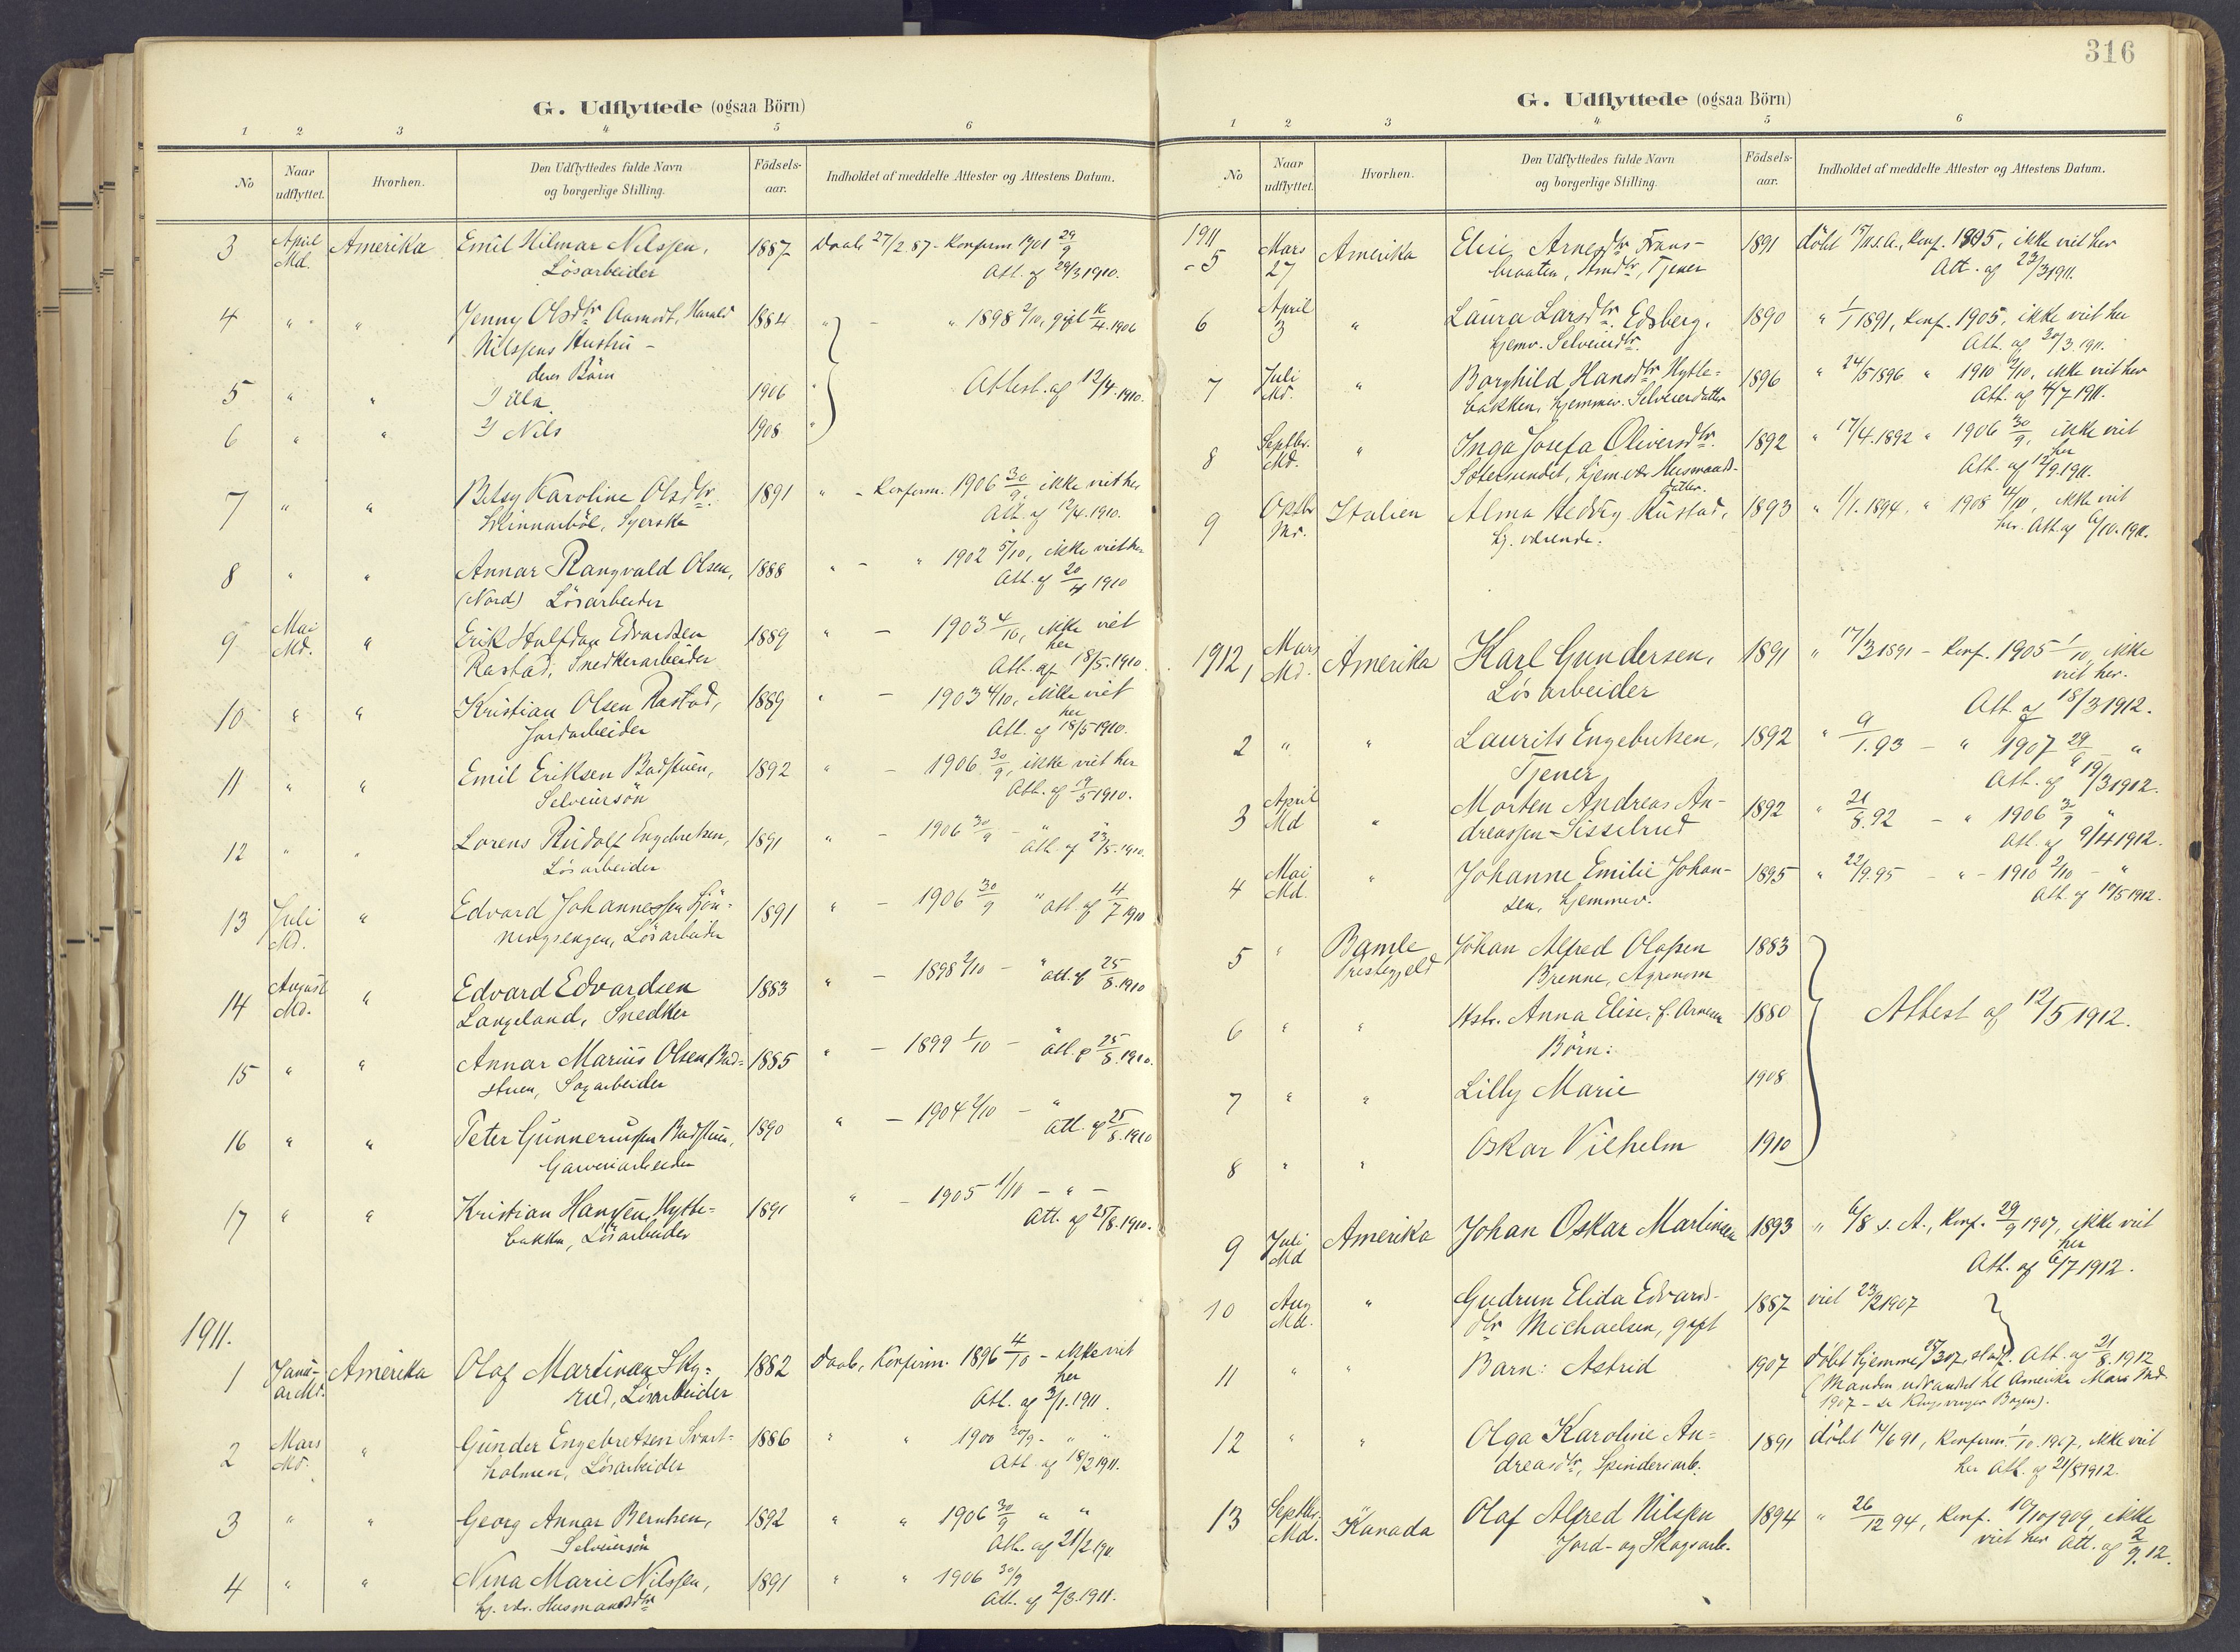 G. Udflyttede (ogsaa Börn)
1 2 3 4 5 6
No
Naar udflyttet.
Hvorhen.
Den Udflyttedes fulde Navn og borgerlige Stilling.
Födsels-aar.
Indholdet af meddelte Attester og Attestens Datum.
3 April Md. Amerika Emil Hilmar Nilssen, 1887 Daab 27/2 87 - Konfirm 1901 29/9
Lösarbeider Att. af 29/3 1910.
4 " " Jenny Olsdtr. Aamodt, Harald 1884 " - " 1898 2/10, gift 4.1906
Nilssens Hustru -
deres Börn
5 " " 1) Ella 1906 " Attest. af 12/4.1910.
6 " " 2) Nils 1908 "
7 " " Betsy Karoline Olsdtr. 1891 " - Konfirm. 1906 30/9, ikke viet her
Skinnarböl, Syerske Att. af 12/4.1910.
8 " " Annar Rangvald Olsen, 1888 " - " 1902 5/10, ikke viet her
(Nord) Lösarbeider Att. af 20/4 1910
9 Mai Md. " Erik Halfdan Edvardsen 1889 " - 1903 4/10, ikke viet her
Rastad, Snedkerarbeider Att. af 18/5.1910.
10 " " Kristian Olsen Rastad, 1889 " - 1903 4/10, ikke viet her
Jordarbeider Att. af 18/5 1910.
11 " " Emil Eriksen Badstuen, 1892 " - 1906 30/9, ikke viet her
Selveiersön Att. af 19/5 1910.
12 " " Lorens Rudolf Engebretsen, 1891 " - 1906 30/9 - " Att. af 23/5.1910.
Lösarbeider
13 Juli Md. " Edvard Johannessen 1891 " - 1906 30/9 " att af 4/7 1910
Lösarbeider
14 August Md. " Edvard Edvardsen 1883 " - 1898 2/10 - " att. af 25/8.1910
Langeland, Snedker
15 " " Annar Marius Olsen Bad- 1885 " - 1899 1/10 - " att. af 25/8.1910.
stuen, Sagarbeider
16 " " Peter Gunneriussen Badstuen, 1890 " - 1904 2/10 - "
Garveriarbeider att. af 25/8.1910
17 " " Kristian Hansen Hytte- 1891 " - 1905 1/10 - " -
bakken, Lösarbeider Att. af 25/8.1910.
1911.
1 Janu-ar Md. Amerika Olaf Martinsen Sky- 1882 Daab, Konfirm. 1896 4/10 - ikke viet her
rud, Lösarbeider Att. af 3/1.1911.
2 Mars Md. " Gunder Engebretsen Svart- 1886 " " 1900 30/9 - " "
holmen, Lösarbeider Att. af 18/2 1911.
3 " " Georg Annar Berntsen, 1892 " " 1906 30/9 " "
Selveiersön Att. af 21/2 1911
4 " " Nina Marie Nilssen, 1891 " " 1906 30/9
hj. vær. Husmandsdtr. Att. af 2/3.1911.
316
G. Udflyttede (ogsaa Börn)
1 2 3 4 5 6
No
Naar udflyttet.
Hvorhen.
Den Udflyttedes fulde Navn og borgerlige Stilling.
Födsels-aar.
Indholdet af meddelte Attester og Attestens Datum.
1911
5 Mars 27 Amerika Elise Arnesdtr. Frans- 1891 döbt s.A., Konf. 1905, ikke viet her
braaten, Tjener Att. af 23/3 1911.
6 April 3 " Laura Larsdtr. Edsberg, 1890 " 1/1 1891, Konf. 1905, ikke viet her
hjemv. Selveierdtr. Att. af 30/3.1911.
7 Juli Md. " Borghild Hansdtr. Hytte- 1896 " 24/5 1896 " 1910 2/10, ikke viet her
bakken, hjemmev. Selveierdatter Att. af 4/7 1911.
8 Septbr. Md. " Inga Josefa Oliversdtr. 1892 " 17/4.1892 " 1906 30/9, ikke viet her
Sætersundet, hjemvær. Husmands-datter. Att. af 12/9.1911.
9 Oktbr Md. Italien Alma Hedvig Rustad, 1893 " 1/1.1894, " 1908 4/10, ikke viet
hj. værende. her. Att. af 6/10.1911.
1912, 1 Mars Md. Amerika Karl Gundersen, 1891 " 17/3 1891 - Konf. 1905 1/10, ikke viet her.
Lösarbeider Att. af 18/3 1912.
2 " " Laurits Engebretsen, 1892 " 9/1.93 - " 1907 29/9 - "
Tjener Att. af 19/3 1912.
3 April Md " Morten Andreas An- 1892 " 21/8.92 - " 1906 30/9 "
dreassen-Sisselrud Att. af 9/4 1912.
4 Mai Md. " Johanne Emilie Johan- 1895 " 22/9.95 - " - 1910 2/10 - "
sen, hjemmev. Att. af 10/5 1912.
5 " Bamle Prestegjeld Johan Alfred Olafsen 1883
Brenne, Agronom
6 " " Hstr. Anna Elise, f. Arnesen 1880 Attest af 12/5 1912.
Börn:
7 " " Lilly Marie 1908
8 " " Oskar Vilhelm 1910
9 Juli Md Amerika Johan Oskar Martinsen 1893 " 6/8 s. A., Konf. 29/9 1907, ikke viet her
Att. af 6/7 1912.
10 Aug Md. " Gudrun Elida Edvards- 1887 viet 23/2 1907
dtr Michaelsen, gift
11 " " Barn: Astrid 1907 döbt hjemme Att. af 21/8.1912
(Manden udvandret til Amerika Mars Md.
1907 - se Kongsvinger Bogen).
12 " " Olga Karoline An- 1891 döbt 14/6 91, Konfirm. 1/10.1907, ikke viet
dreasdtr, Spinderiarb. her Att. af 21/8 1912.
13 Septbr. Md. Kanada Olaf Alfred Nilssen 1894 " 26/12 94, Konf. 10/10 1909, ikke
Jord- og Skogsarb. viet her Att. af 2/9.12.